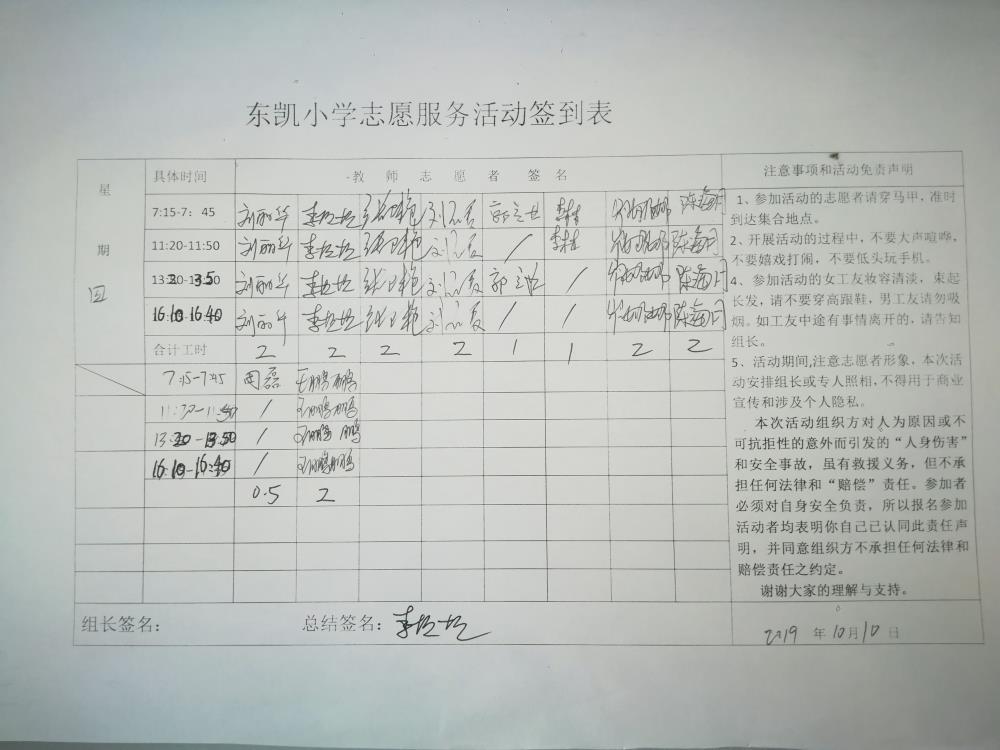 东凯小学志愿服务活动签到表
星期四 具体时间 教师志愿者签名 注意事项和活动免责声明
7:15-7:45 刘丽华 李垃垃
11:20-11:50 刘丽华 李垃垃 /
13:20-13:50 刘丽华 李垃垃 /
16:10-16:40 刘丽华 李垃垃 / /
合计工时 2 2 2 2 1 1 2 2
7:15-7:45 周磊 王鹏鹏
/ 王鹏鹏
13:20-13:50 / 王鹏鹏
16:10-16:40 / 王鹏鹏
0.5 2
1、参加活动的志愿者请穿马甲，准时
到达集合地点。
2、开展活动的过程中，不要大声喧哗，
不要嬉戏打闹，不要低头玩手机。
4、参加活动的女工友妆容清淡，束起
长发，请不要穿高跟鞋，男工友请勿吸
烟。如工友中途有事情离开的，请告知
组长。
5、活动期间,注意志愿者形象，本次活
动安排组长或专人照相,不得用于商业
宣传和涉及个人隐私。
本次活动组织方对人为原因或不
可抗拒性的意外而引发的“人身伤害”
和安全事故，虽有救援义务，但不承
担任何法律和“赔偿”责任。参加者
必须对自身安全负责，所以报名参加
活动者均表明你自己已认同此责任声
明，并同意组织方不承担任何法律和
赔偿责任之约定。
谢谢大家的理解与支持。
组长签名： 总结签名：李垃垃 2019年10月10日